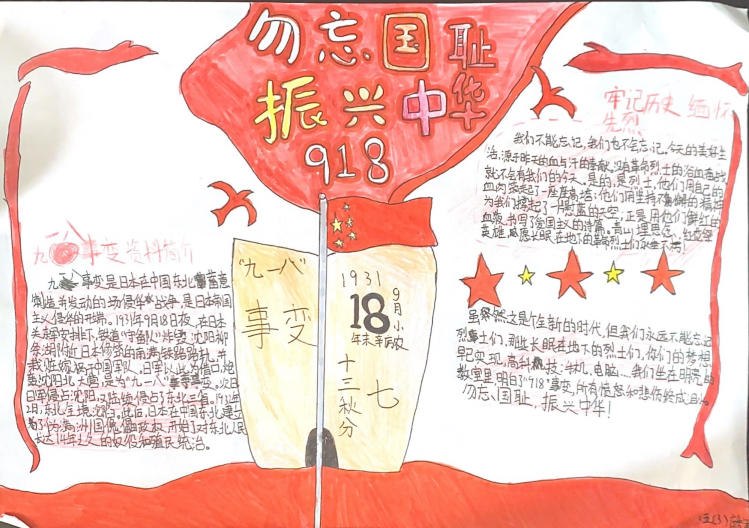 勿忘国耻
振兴中华
918
九一八事变资料简介
九一八事变是日本在中国东北蓄意
制造并发动的一场侵华战争,是日本帝国
主义侵华的开端。1931年9月18日夜,在日本
关东军安排下,铁道“守备队”炸毁沈阳柳
条湖附近日本修筑的南满铁路路轨,并
栽赃嫁祸于中国军队。日军以此为借口,炮
轰沈阳北大营,是为“九一八”事变。次日
日军侵占沈阳,又陆续侵占了东北三省。1932年
2月,东北全境沦陷。此后,日本在中国东北建立
了伪满洲国傀儡政权,开始了对东北人民
长达14年之久的奴役和殖民统治。
“九一八”
事变
1931
18
9月小
农
辛未年
十三秋分
七
牢记历史 缅怀
先烈
我们不能忘记,我们也不会忘记。今天的美好生
活,源于昨天的血与汗的奉献。没有革命烈士的浴血奋战
就不会有我们的今天。是的,是烈士,他们用自己的
血肉筑起了一座座高墙;他们用坚持不懈的精神
为我们撑起了一片蔚蓝的天空;正是用他们鲜红的
血液,书写了爱国主义的诗篇。青山埋思念,
英雄,愿长眠在地下的革命烈士们永垂不朽!
虽然这是个全新的时代,但我们永远不能忘记
烈士们,那些长眠在地下的烈士们,你们的梦想
早已实现,高科技:手机、电脑…我们坐在明亮的
教室里,明白了“918”事变,所有愤怒和悲伤终成
勿忘国耻,振兴中华!